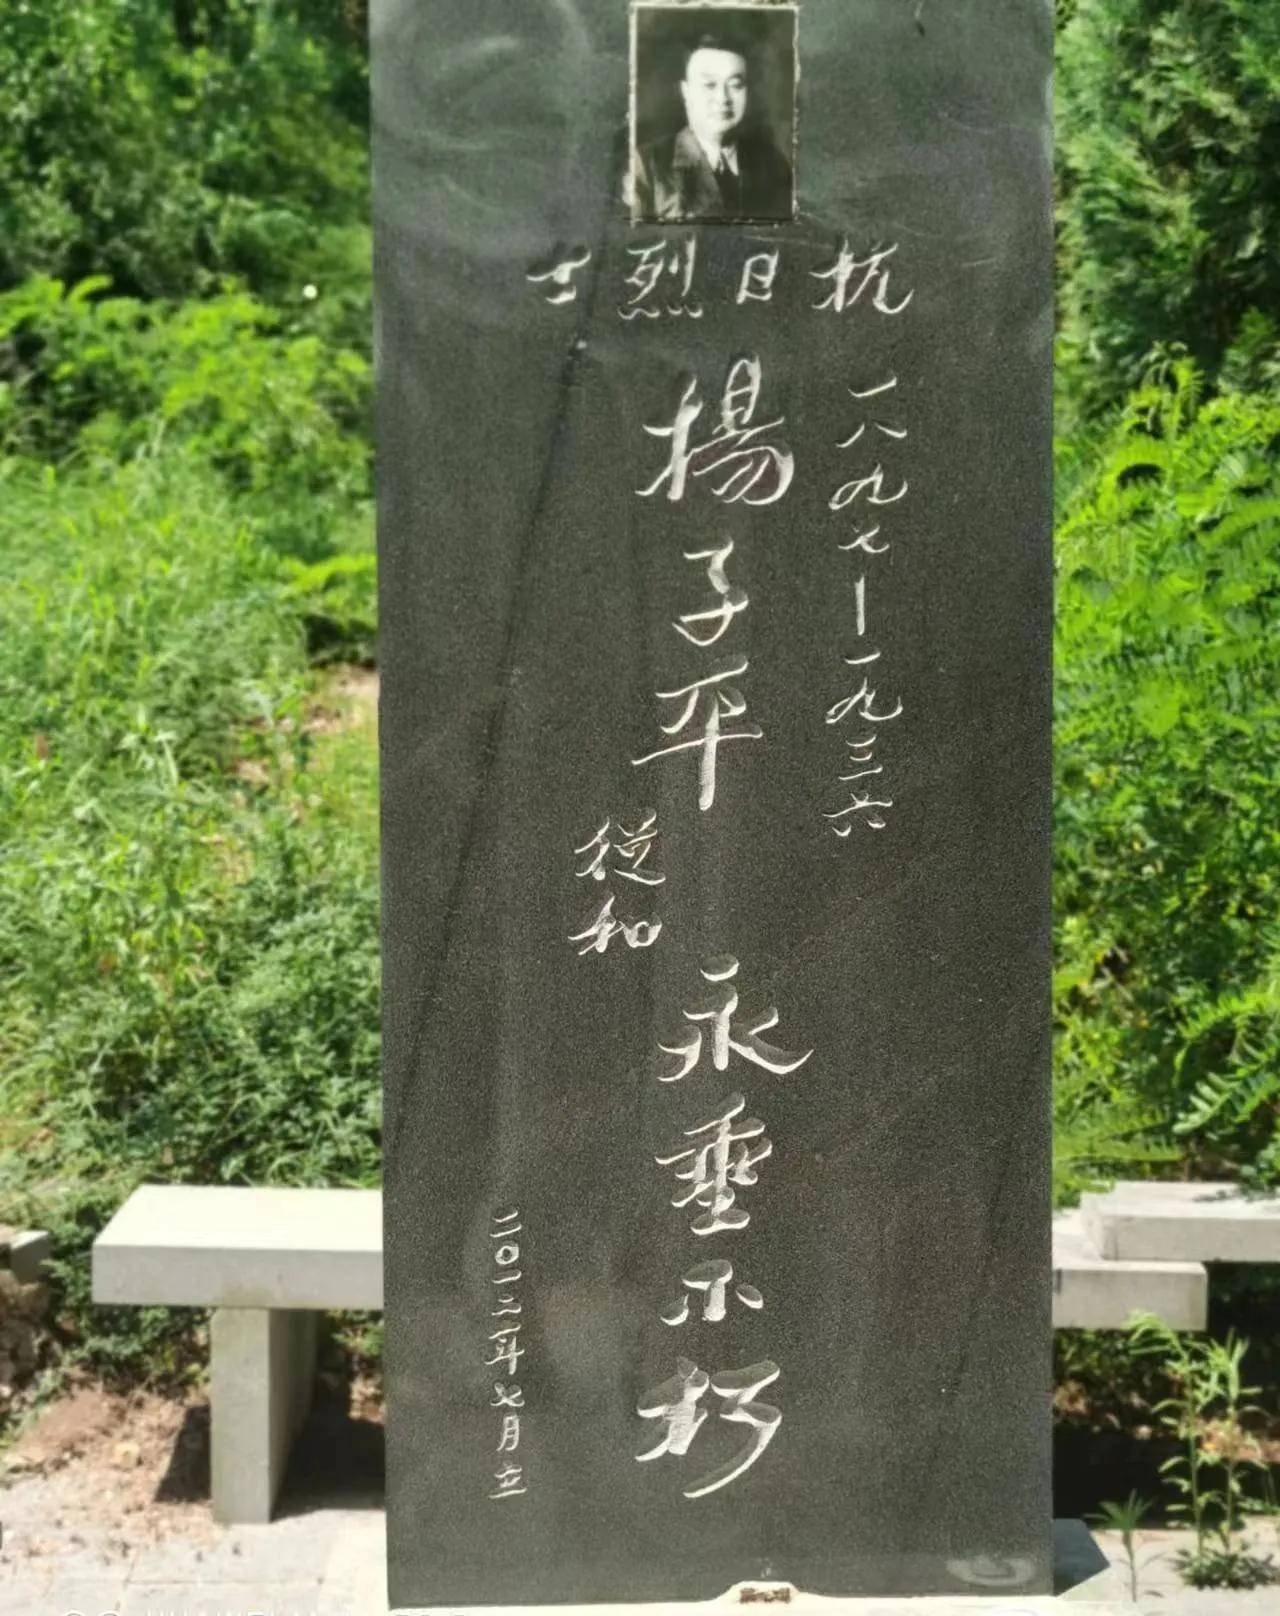 抗日烈士
一八九七—一九三六
楊子平
從和
永垂不朽
二〇一二年七月立